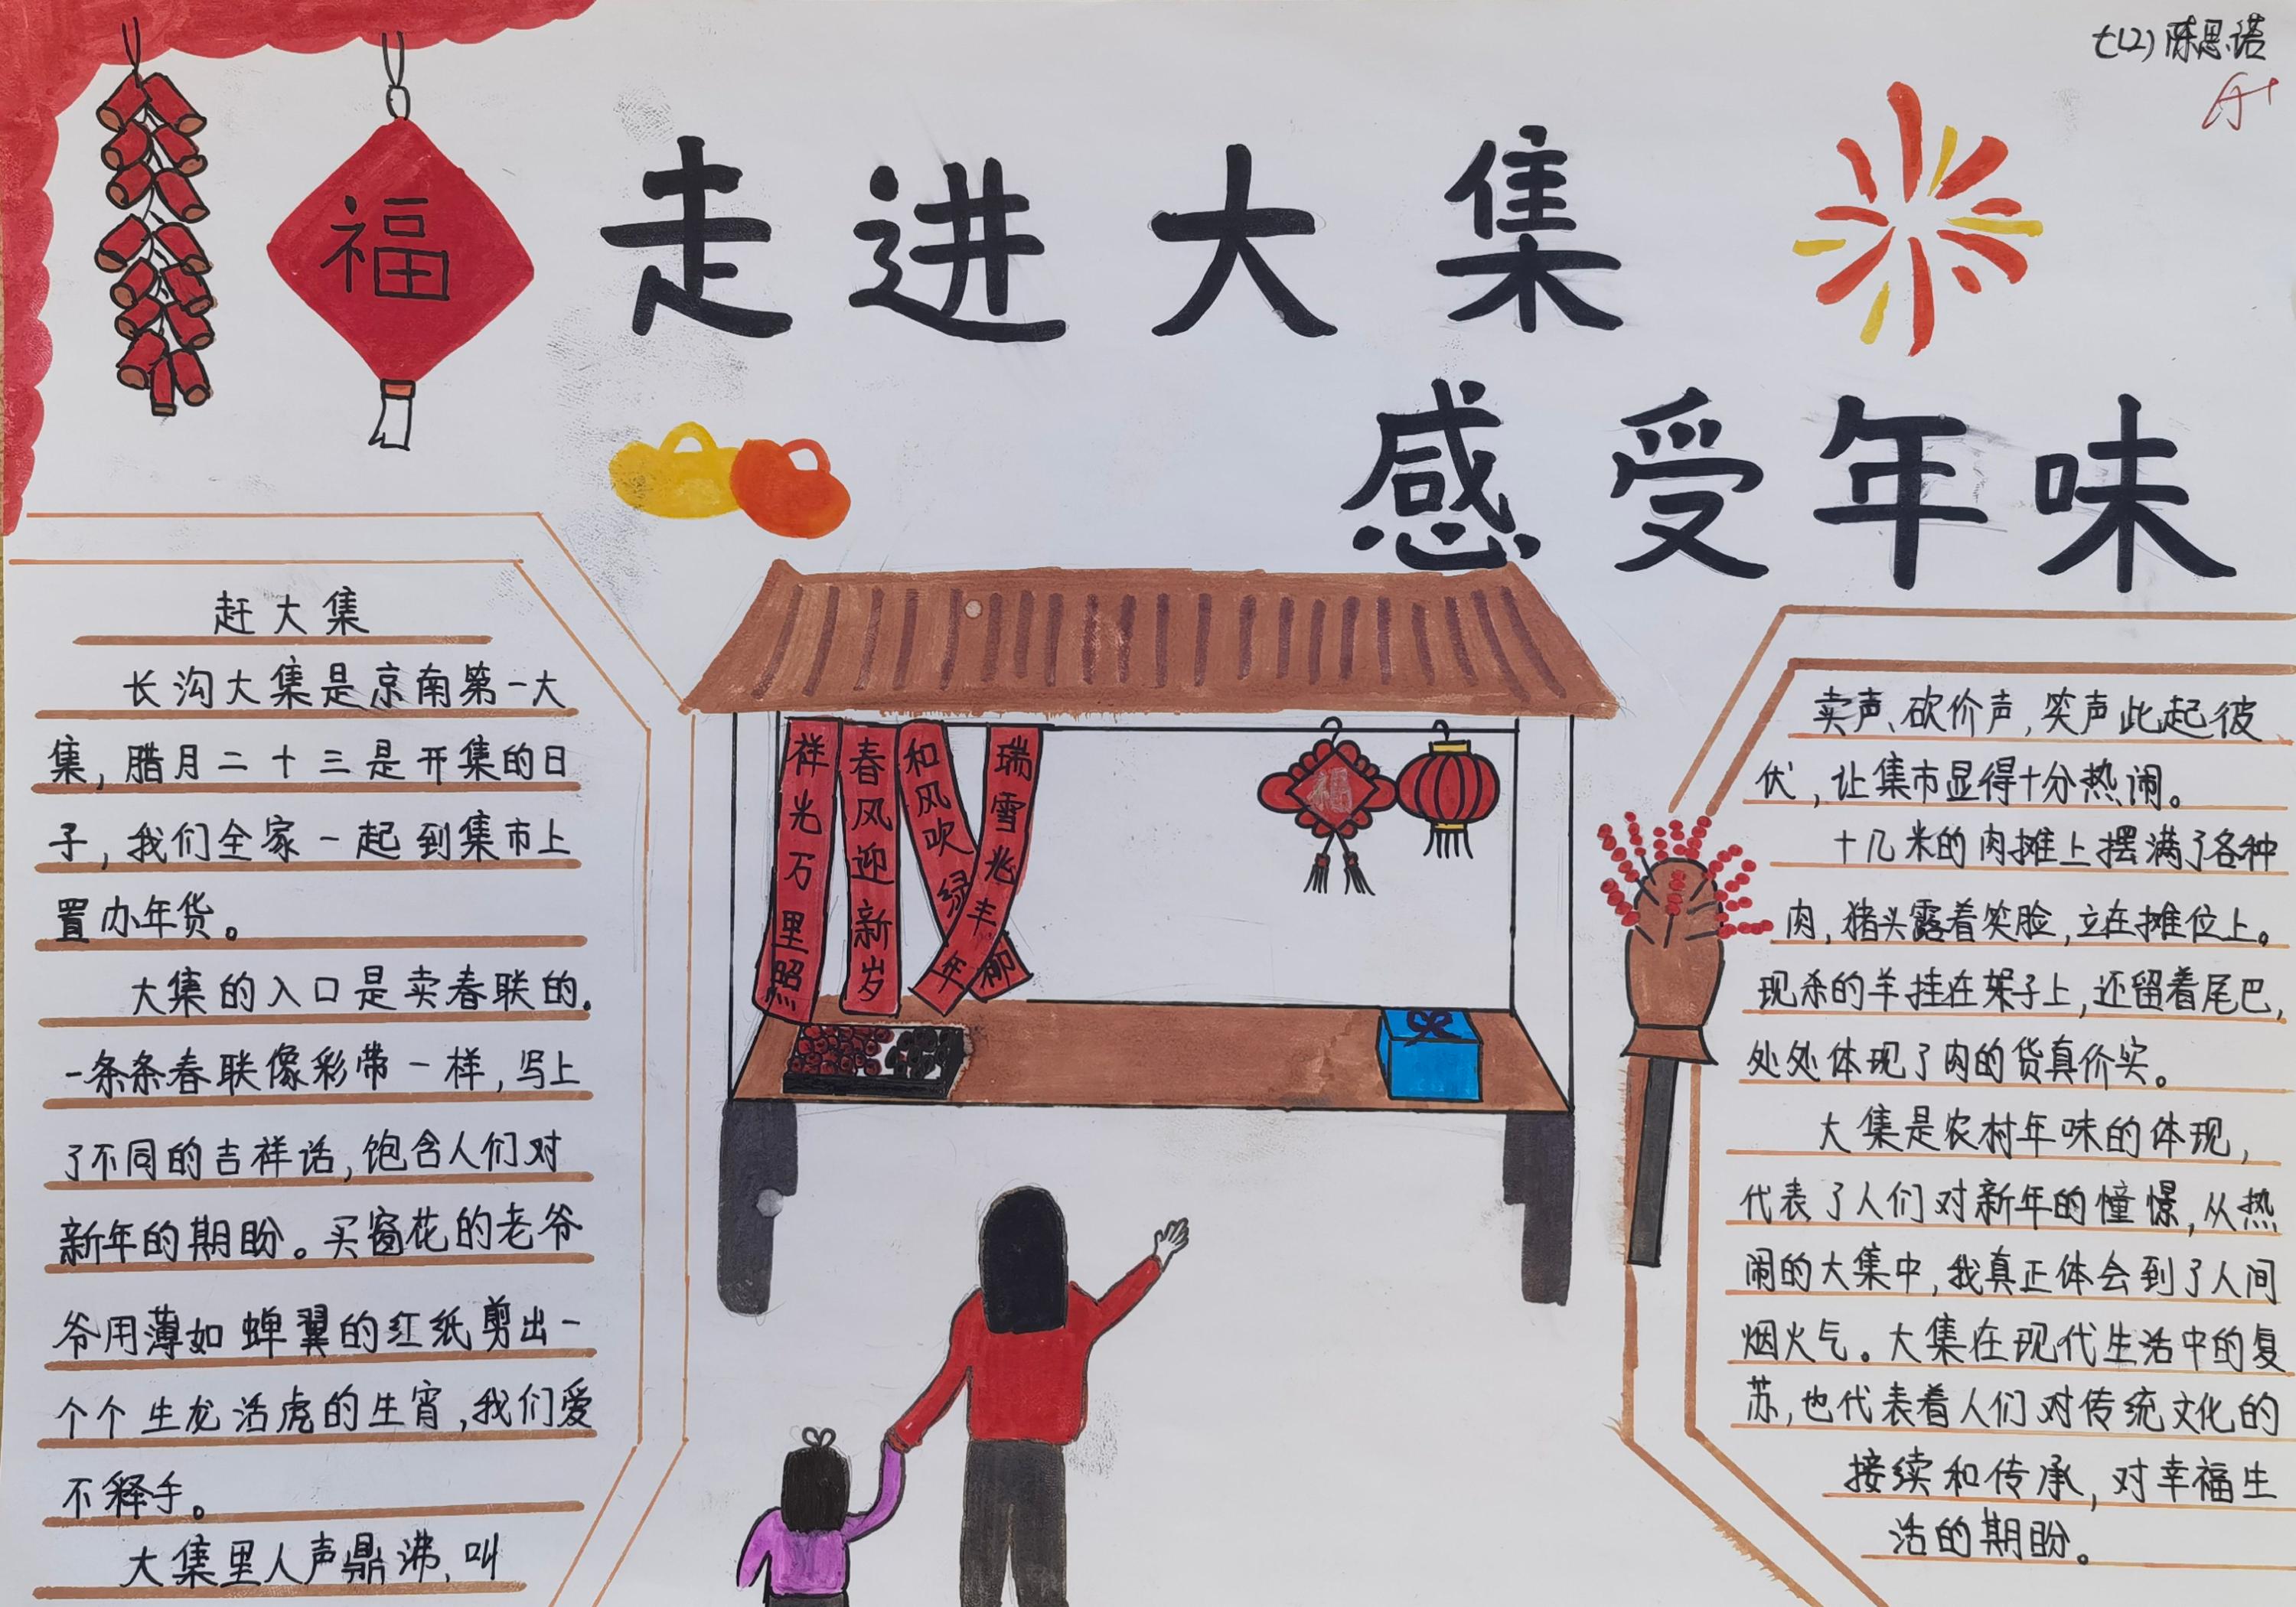 七(2) 陈思诺
A+
福
走进大集
感受年味
赶大集
长沟大集是京南第一大
集，腊月二十三是开集的日
子，我们全家一起到集市上
置办年货。
大集的入口是卖春联的.
一条条春联像彩带一样，写上
了不同的吉祥话，饱含人们对
新年的期盼。买窗花的老爷
爷用薄如蝉翼的红纸剪出一
个个生龙活虎的生宵，我们爱
不释手。
大集里人声鼎沸、叫
祥光万里照
春风迎新岁
和风吹绿柳
瑞雪兆丰年
福
卖声、砍价声，笑声此起彼
伏，让集市显得十分热闹。
十几米的肉摊上摆满了各种
肉，猪头露着笑脸，立在摊位上。
现杀的羊挂在架子上，还留着尾巴，
处处体现了肉的货真价实。
大集是农村年味的体现，
代表了人们对新年的憧憬，从热
闹的大集中，我真正体会到了人间
烟火气。大集在现代生活中的复
苏，也代表着人们对传统文化的
接续和传承，对幸福生
活的期盼。